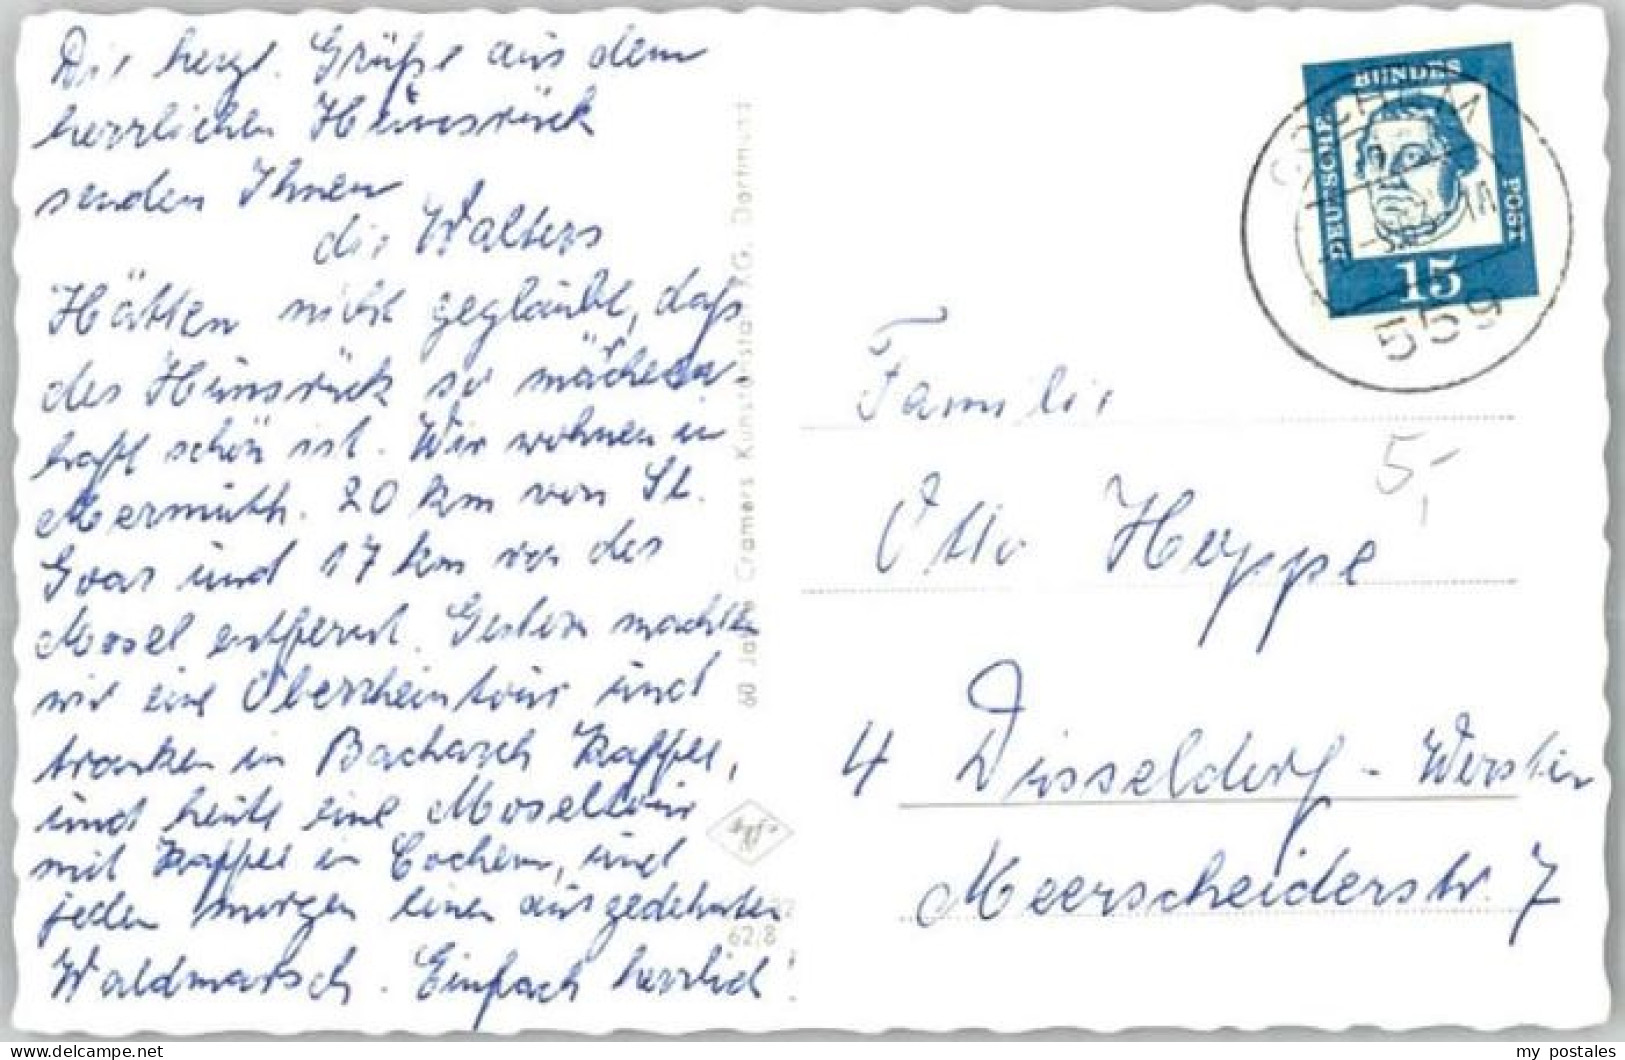 Die herzl. Grüße aus dem
herrlichen Hunsrück
senden Ihnen
die Walters
Hätten nicht geglaubt, daß
der Hunsrück so märchen
haft schön ist. Wir wohnen in
Mermuth. 20 km von St.
Goar und 17 km von der
Mosel entfernt. Gestern machten
wir eine Oberrheintour und
tranken in Bacharach Kaffee,
und heute eine Moseltour
mit Kaffee in Cochem, und
jeden morgen einen ausgedehnten
Waldmarsch. Einfach herrlich!
60 Jahre Cramers Kunstanstalt KG. Dortmund
62/8
DEUTSCHE
BUNDES
POST
15
COCHEM
559
Familie
5,-
Otto Hoppe
4 Düsseldorf-Wersten
Meerscheiderstr. 7
my postales